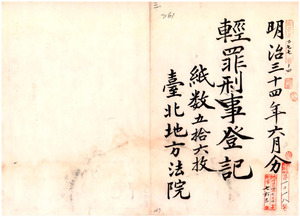 明治三十四年六月分
輕罪刑事登記
紙数五拾六枚
臺北地方法院